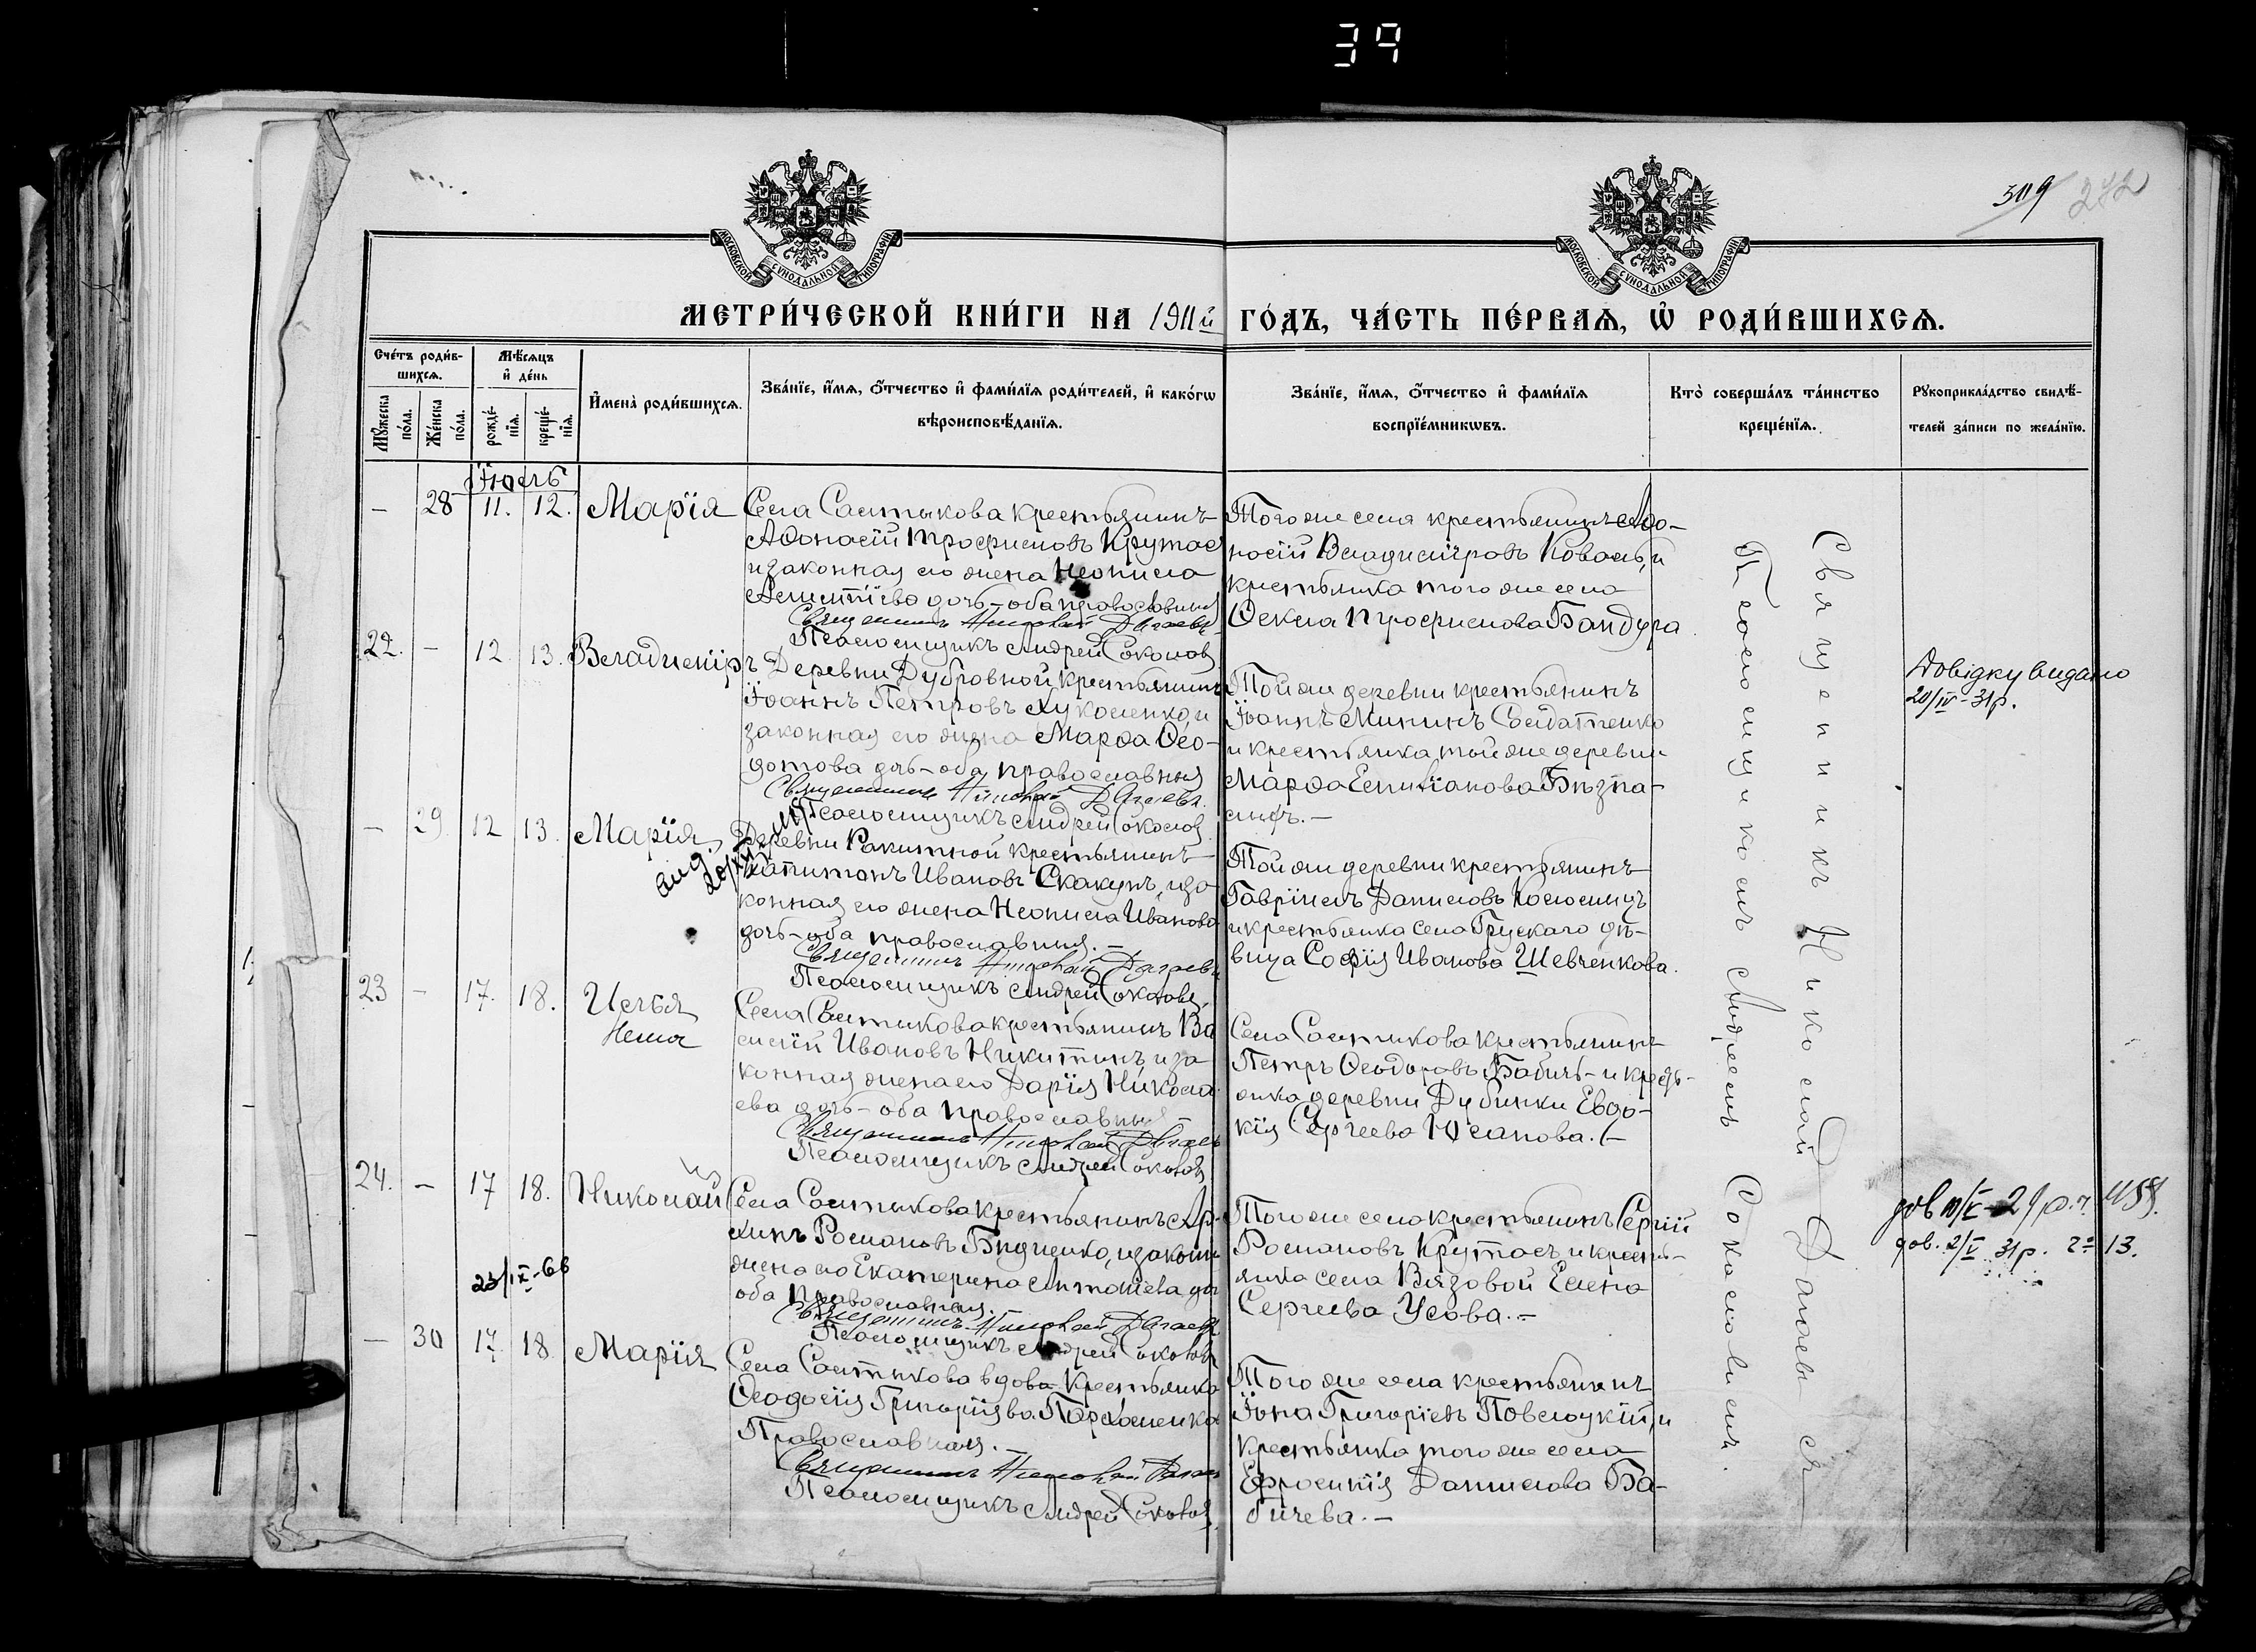 39
309
272
МОСКОВСКОЙ СУНОДАЛЬНОЙ ТИПОГРАФІИ
МОСКОВСКОЙ СУНОДАЛЬНОЙ ТИПОГРАФІИ
МЕТРИ́ЧЕСКОЙ КНИ́ГИ НА 1911й ГО́ДЪ, ЧА́СТЬ ПЕ́РВАѦ, Ѡ РОДИ́ВШИХСѦ.
Счéтъ роди́в-
шихсѧ.
Мꙋ́жеска по́ла.
Же́нска по́ла.
Мѣ́сѧцъ и҆ де́нь
рожде́-
нїѧ.
креще́-
нїѧ.
И҆мена̀ роди́вшихсѧ.
Зва́нїе, и҆́мѧ, ѻ҆́тчество и҆ фами́лїѧ роди́телей, и҆ како́гѡ
вѣроисповѣ́данїѧ.
Зва́нїе, и҆́мѧ, ѻ҆́тчество и҆ фами́лїѧ
воспрїе́мникѡвъ.
Кто̀ соверша́лъ та́инство
креще́нїѧ.
Рꙋкоприкла́дство свидѣ́-
телей за́писи по жела́нїю.
Іюль
— 28 11. 12. Марія
Села Салтыкова крестьянинъ
Аѳонасій Трофимовъ Крутас
и законная его жена Неонила
дочь – оба православныя
Священникъ Николай Данаевъ
Псаломщикъ Андрей Соколовъ
Тогоже села крестьянинъ Аѳо-
насій Владиміровъ Коваль, и
крестьянка того же села
Ѳекла Трофимова Бандура
22. — 12 13. Владиміръ
Деревни Дубровной крестьянинъ
Іоаннъ Петровъ и
законная его жена Марѳа Ѳео-
дотова дчь – оба православныя
Священникъ Николай Данаевъ
Псаломщикъ Андрей Соколовъ
Той же деревни крестьянинъ
Іоаннъ Мининъ Солдатенко
и крестьянка той же деревни
Марѳа Епифанова
Довідку видано
20/IV – 31р.
— 29. 12 13. Марія
Деревни Ракитной крестьянинъ
Капитонъ Ивановъ Скакунъ, и за-
конная его жена Неонила Иванова
дочь – оба православныя. —
Священникъ Николай Данаевъ
Псаломщикъ Андрей Соколовъ
Той же деревни крестьянинъ
Гавріилъ Даниловъ Коломиецъ
и крестьянка села Грускаго дѣ-
вица Софія Иванова Шевченкова.
23 — 17. 18. Илья
Села Салтикова крестьянинъ Ва
силій Ивановъ Никитинъ, и за
конная жена его Дарія Никола
ева дочь – оба православныя
Священникъ Николай Данаевъ
Псаломщикъ Андрей Соколовъ
Села Салтикова крестьянинъ
Петръ Ѳеодоровъ Бабичъ – и кресть-
янка деревни Дубинки Евдо-
кія Сергеева Юсапова. —
24. — 17 18. Николай
23/IX-66
Села Салтыкова крестьянинъ Ар-
хипъ Романовъ Бидненко, и законн
жена его Екатерина Антонова дч
оба православныя.
Священникъ Николай Данаевъ
Псаломщикъ Андрей Соколовъ
Тогоже села крестьянинъ Сергій
Романовъ Крутасъ, и кресть-
янка села Вязовой Елена
Сергеева Усова. —
дов. 2/V 31р. 13.
— 30 17. 18 Марія
Села Салтыкова вдова крестьянка
Ѳеодосія Григоріева Пархоменко
Православная. —
Священникъ Николай Данаевъ
Псаломщикъ Андрей Соколовъ
Того же села крестьянинъ
Іона Григоріевъ и
крестьянка того же села
Ефросинія Данилова Ба-
бичева. —
Священникъ Николай Данаевъ съ
Псаломщикомъ Андреемъ Соколовымъ.